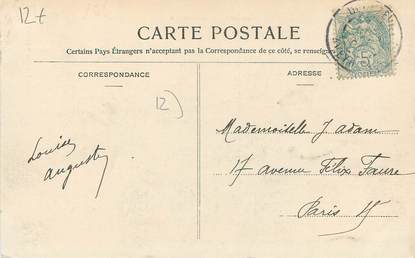 12+
CARTE POSTALE
Certains Pays Étrangers n'acceptant pas la Correspondance de ce côté, se renseigner
CORRESPONDANCE
ADRESSE
12)
Louise
Auguste
Mademoiselle J. adam
17 avenue Félix Faure
Paris 15